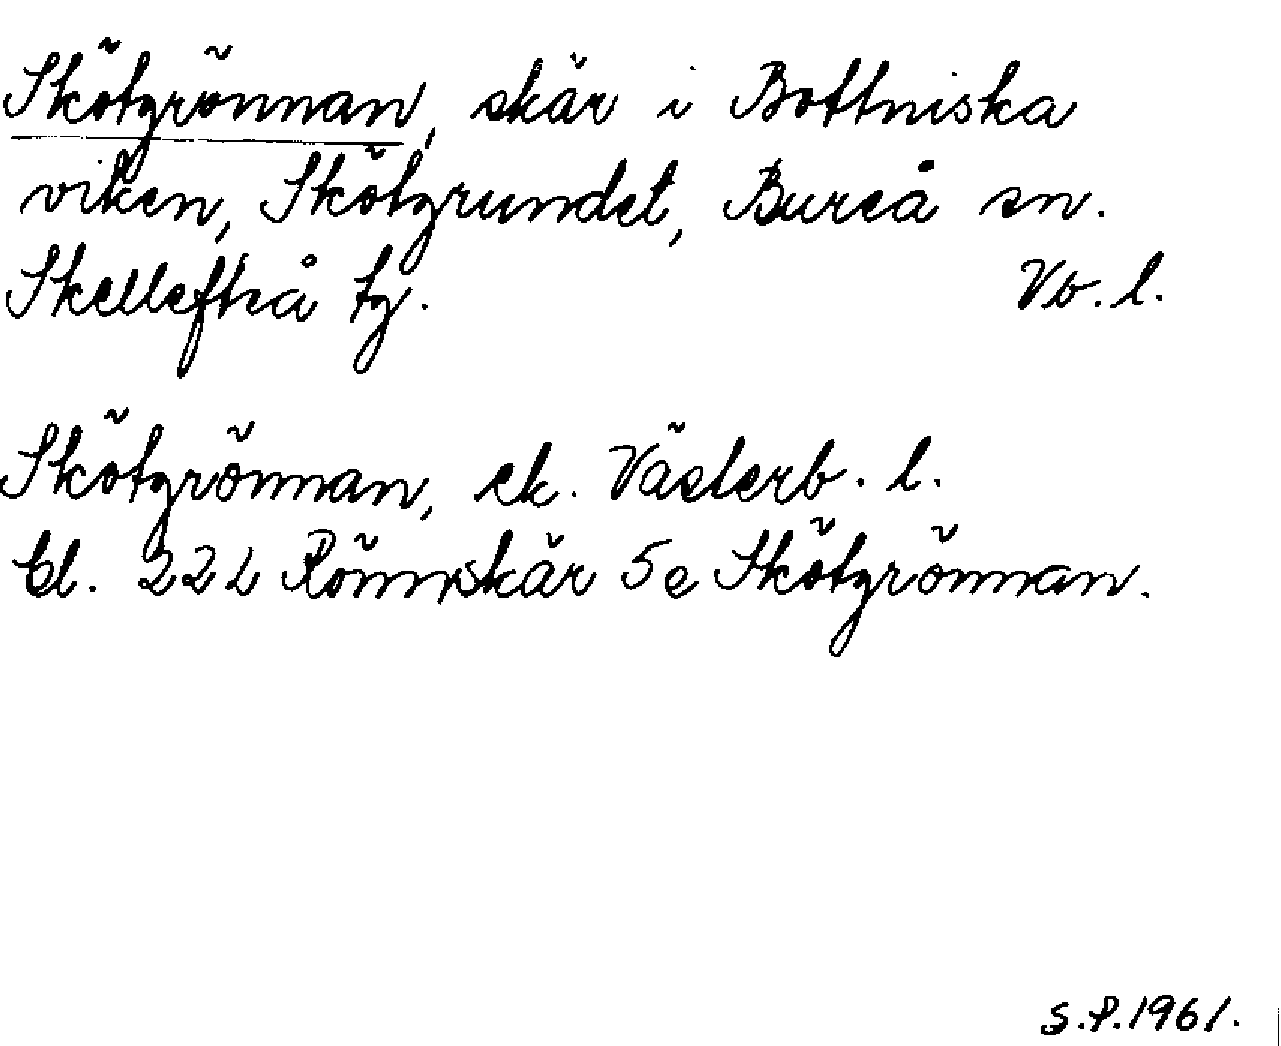 Skötgrönnan, skär i Bottniska
viken, Skötgrundet, Bureå sn.
Skellefteå tg. Vb. l.
Skötgrönnan, ek. Västerb. l.
Bl. 22 L Rönnskär 5e Skötgrönnan.
S.P. 1961.